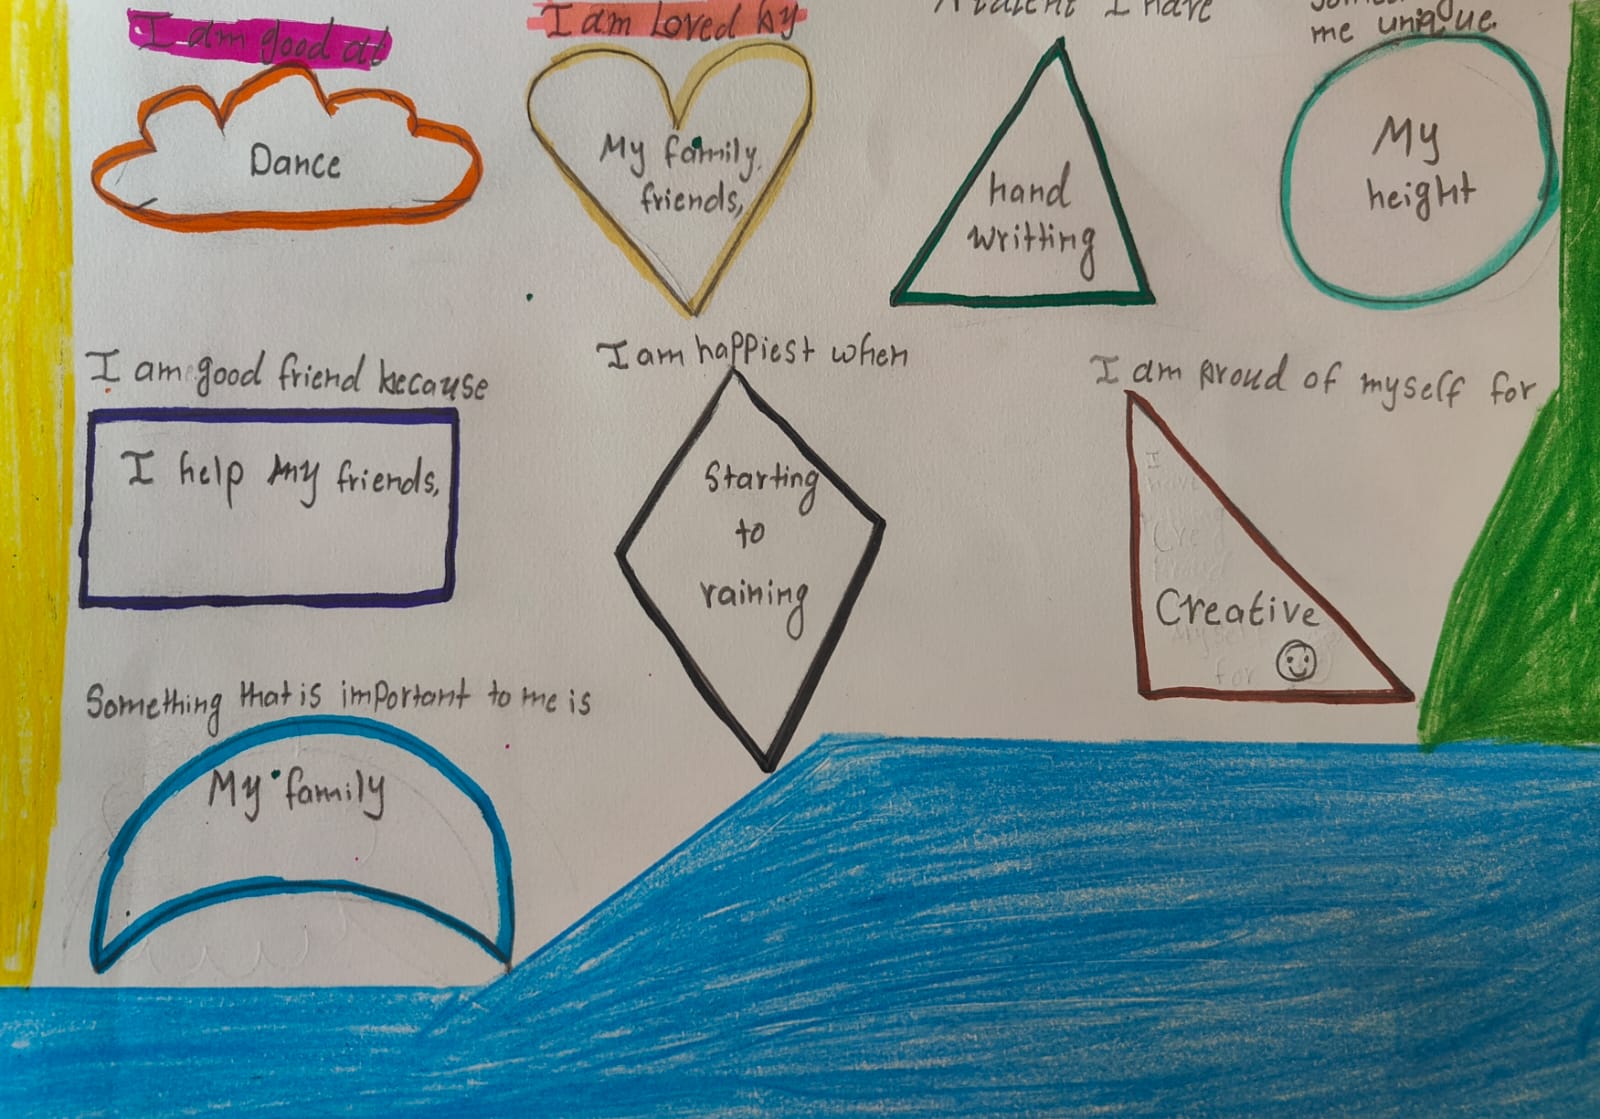 I am good at
Dance
I am Loved by
My family.
friends,
A talent I have
hand
writting
me unique.
My
height
I am good friend because
I help my friends,
I am happiest when
Starting
to
raining
I am proud of myself for
Creative
Something that is important to me is
My family